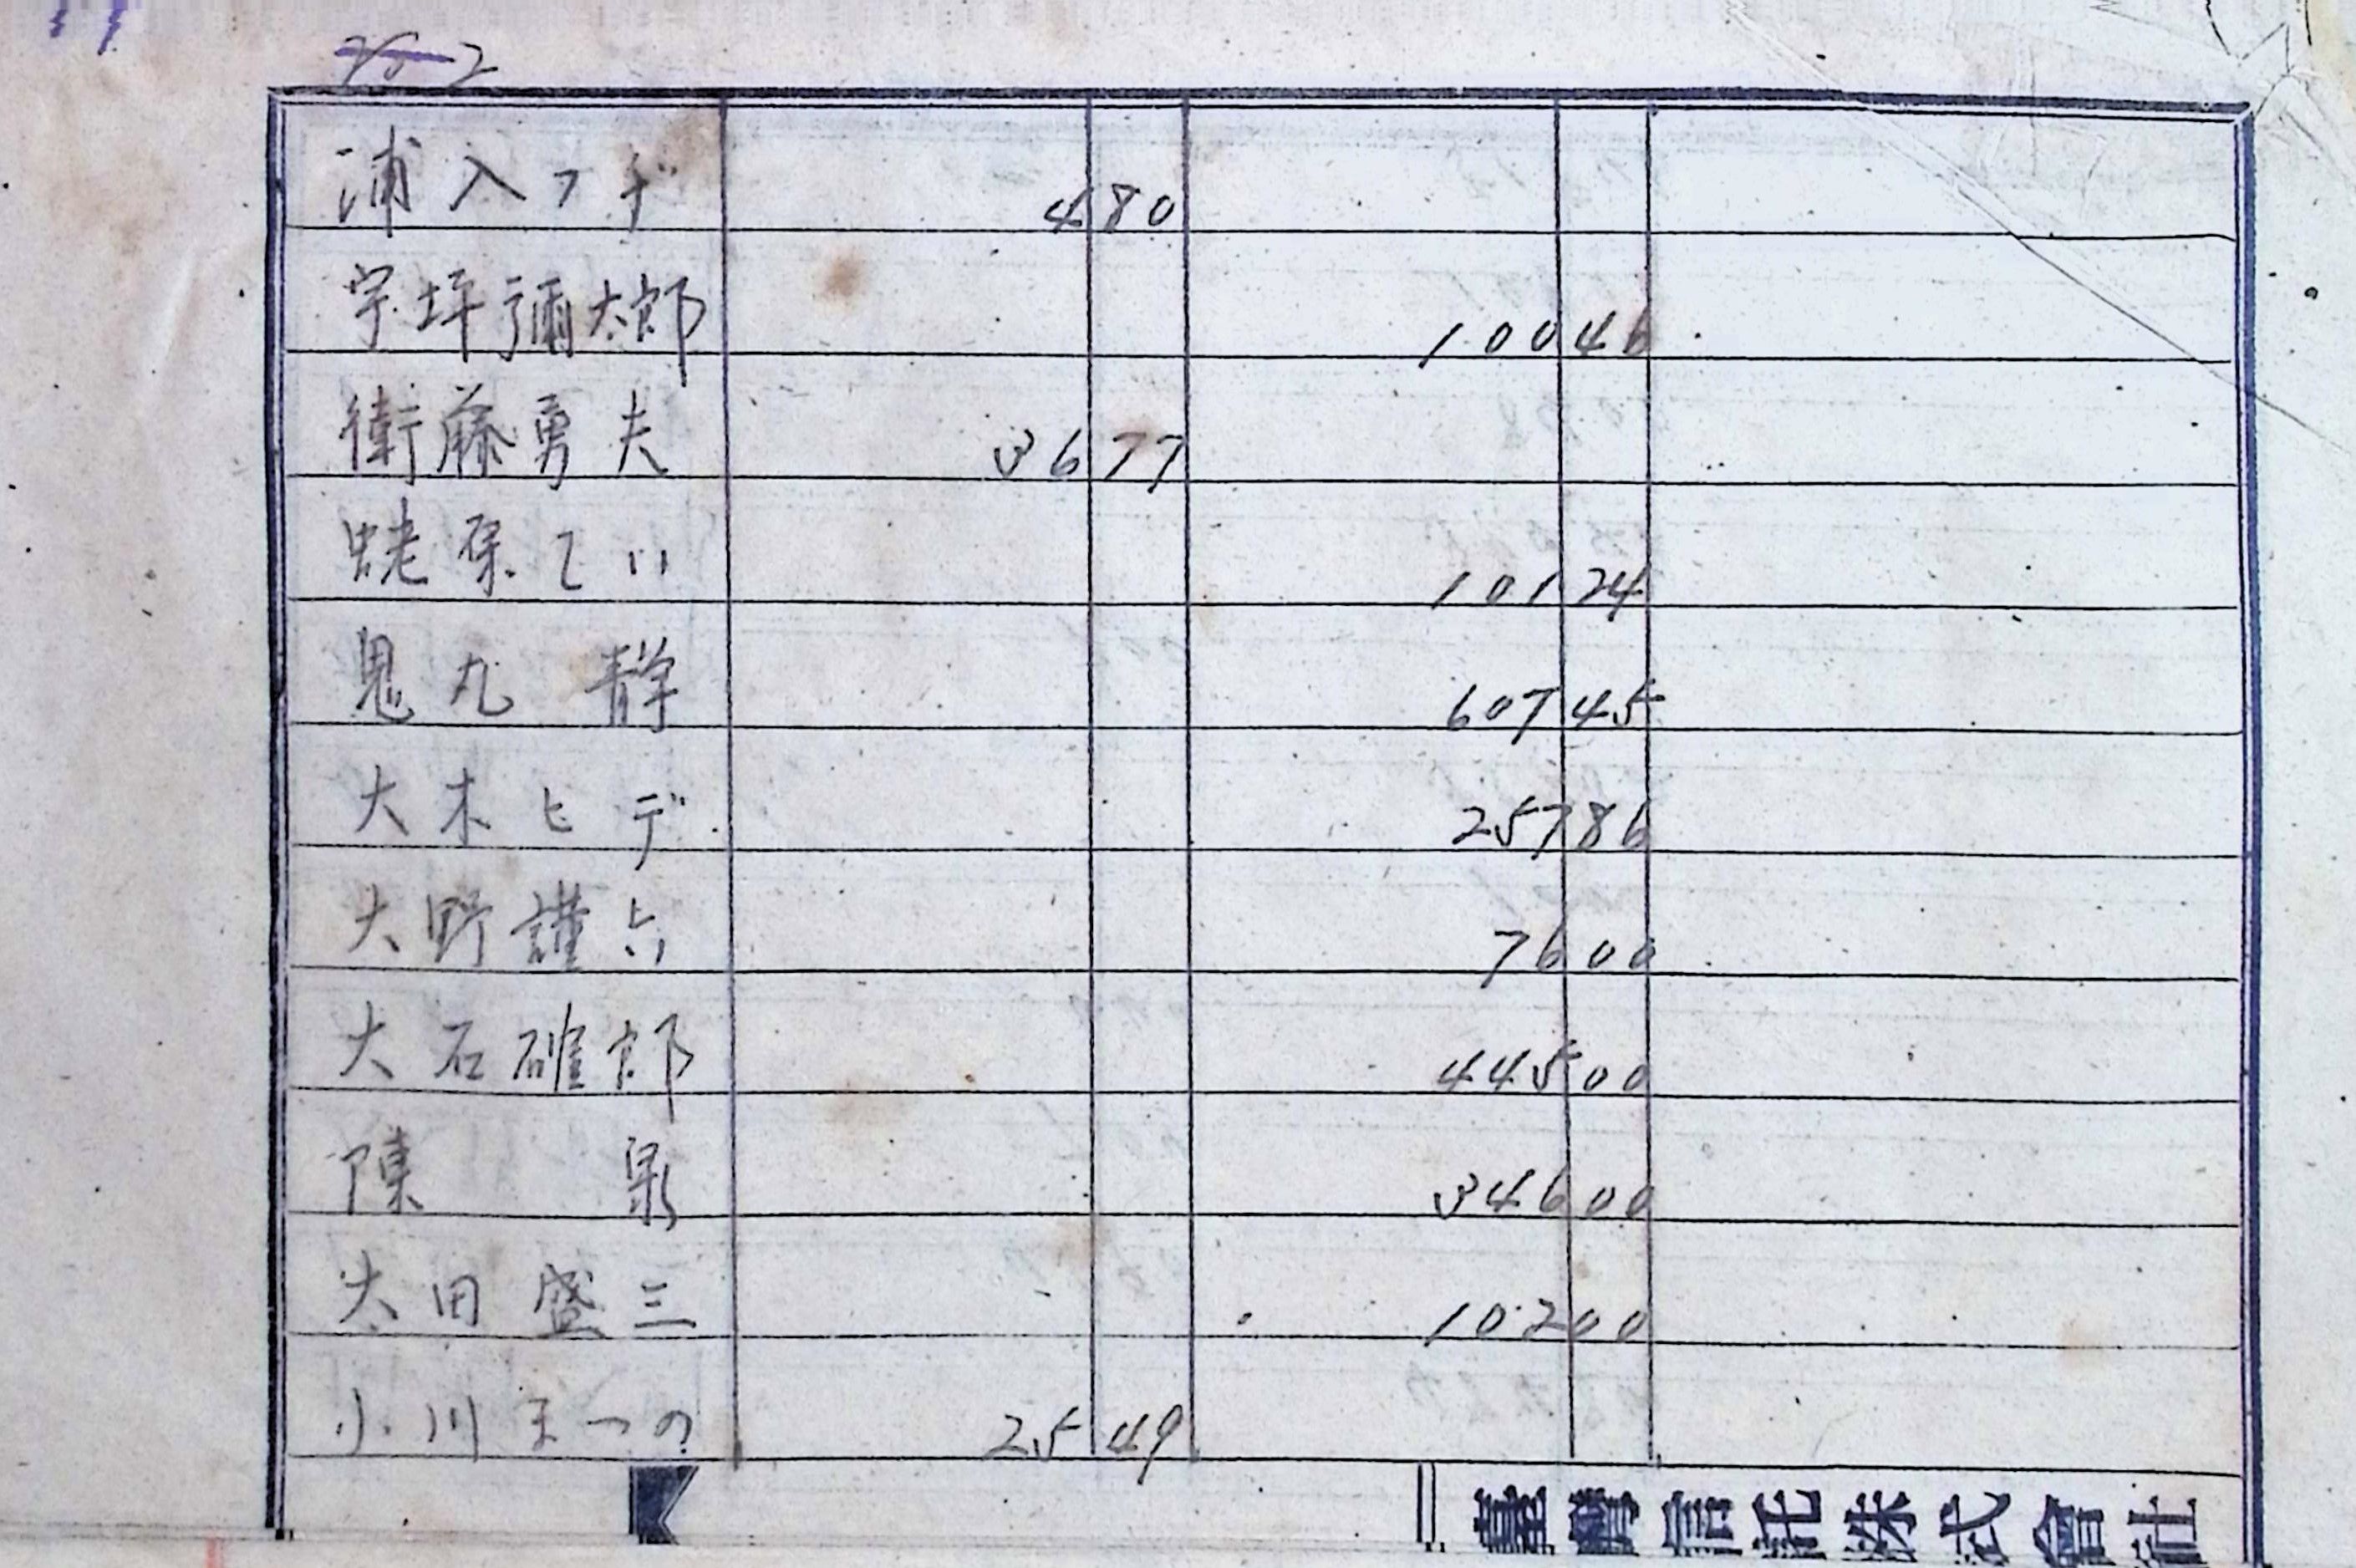 2
浦入フヂ 480
宇坪彌太郎 10046
衛藤勇夫 3677
蛯原てい 10124
鬼丸 静 60745
大木ヒデ 25786
大野謹六 7600
大石確郎 44500
陳 泉 34600
太田盛三 10200
小川まつの 2549
臺灣信託株式會社